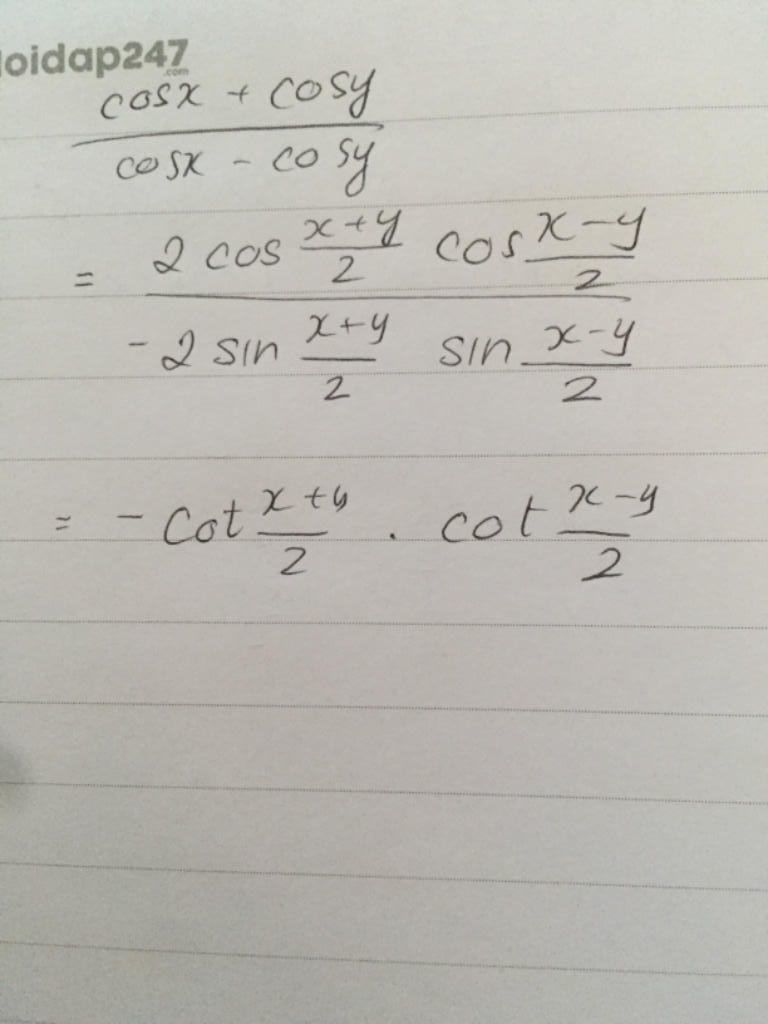 loidap247
.com
cosx + cosy
cosx - cosy
= 2 cos x+y/2 cos x-y/2
-2 sin x+y/2 sin x-y/2
= - cot x+y/2 . cot x-y/2